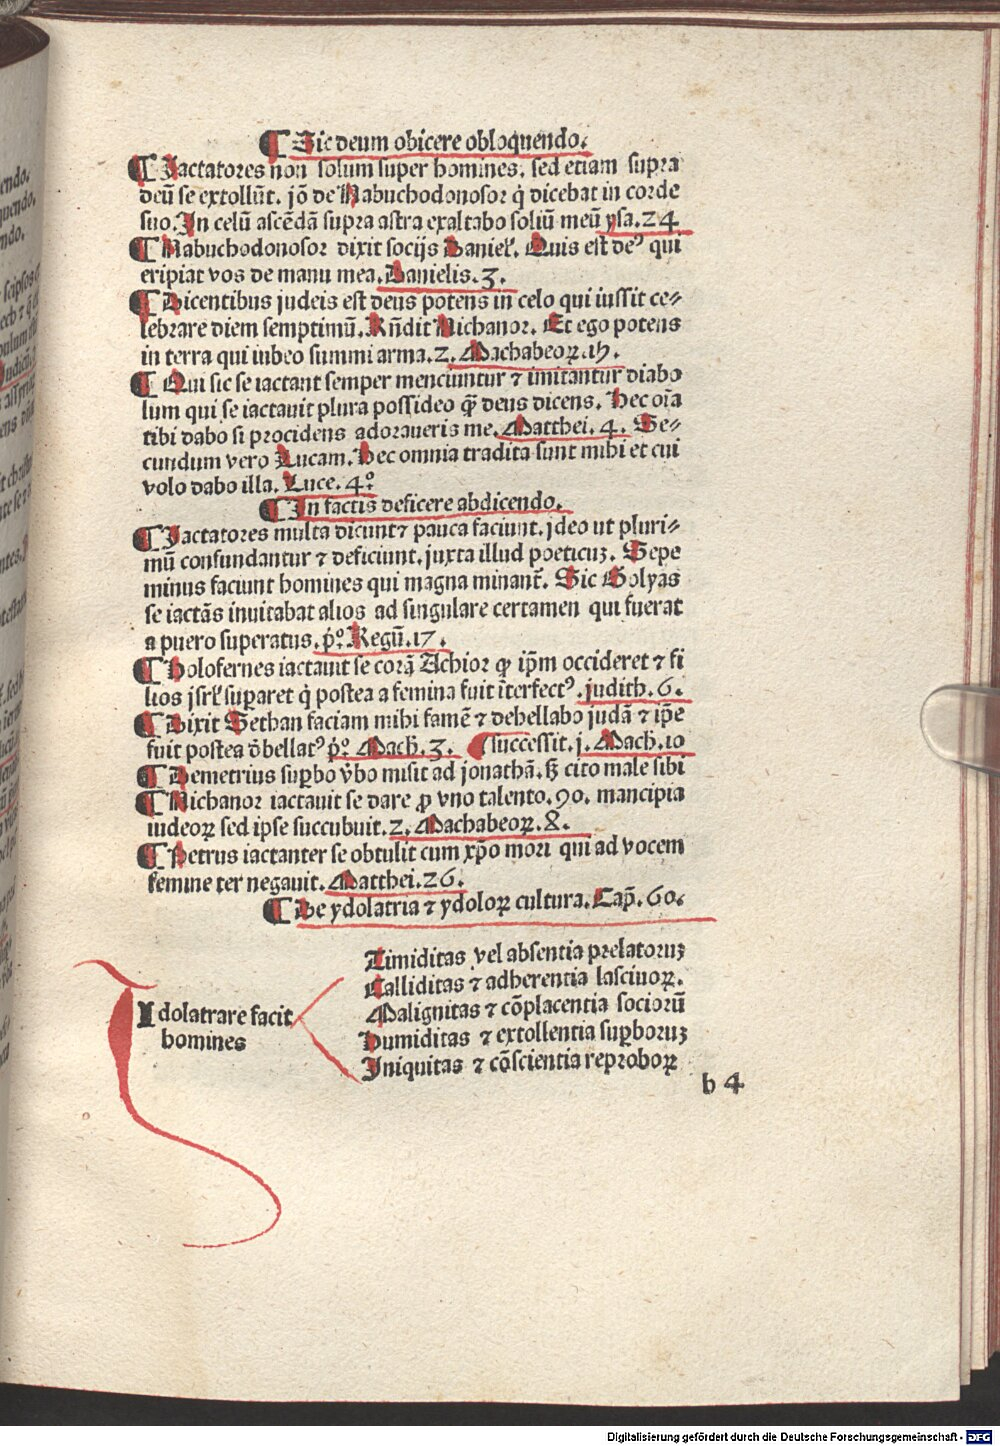 ¶ Sic deum obicere obloquendo.
¶ Iactatores non solum super homines. sed etiam supra
deū se extollūt. jō de Nabuchodonosor q̇ dicebat in corde
suo. In celū ascēdā supra astra exaltabo soliū meū ysa. 24
¶ Nabuchodonosor dixit socijs Daniel̕. Quis est deꝰ qui
eripiat vos de manu mea. Danielis. 3.
¶ Dicentibus judeis est deus potens in celo qui iussit ce⸗
lebrare diem semptimū. Rn̄dit Nichanor. Et ego potens
in terra qui iubeo summi arma. 2. Machabeoꝝ. 15.
¶ Qui sic se iactant semper menciuntur ⁊ imitantur diabo
lum qui se iactauit plura possideo q̄ꝫ deus dicens. Hec oīa
tibi dabo si procidens adoraueris me. Matthei. 4. Se⸗
cundum vero Lucam. Hec omnia tradita sunt mihi et cui
volo dabo illa. Luce. 4º
¶ In factis deficere abdicendo.
¶ Iactatores multa dicunt ⁊ pauca faciunt. jdeo ut pluri⸗
mū confundantur ⁊ deficiunt. juxta illud poeticuꝫ. Sepe
minus faciunt homines qui magna minant̄. Sic Golyas
se iactās inuitabat alios ad singulare certamen qui fuerat
a puero superatus. p̄º. Regū. 17.
¶ Holofernes iactauit se corā Achior ꝙ ip̄m occideret ⁊ fi
lios jsrl̕ suꝑaret q̇ postea a femina fuit īterfectꝰ. judith. 6.
¶ Dixit Gethan faciam mihi famē ⁊ debellabo judā ⁊ ip̄e
fuit postea ō bellatꝰ p̄º. Mach. 3. ( successit. j. Mach. 10
¶ Demetrius suꝑbo v̄bo misit ad jonathā. sꝫ cito male sibi
¶ Nichanor iactauit se dare ꝓ vno talento. 90. mancipia
iudeoꝝ sed ipse succubuit. 2. Machabeoꝝ. 8.
¶ Petrus iactanter se obtulit cum xp̄o mori qui ad vocem
femine ter negauit. Matthei. 26.
¶ De ydolatria ⁊ ydoloꝝ cultura. Cap̄. 60.
Timiditas vel absentia prelatoruꝫ
Calliditas ⁊ adherentia lasciuoꝝ.
Ydolatrare facit
homines
Malignitas ⁊ cōplacentia sociorū
Humiditas ⁊ extollentia suꝑboruꝫ
Iniquitas ⁊ cōscientia reproboꝝ
b 4
Digitalisierung gefördert durch die Deutsche Forschungsgemeinschaft - DFG